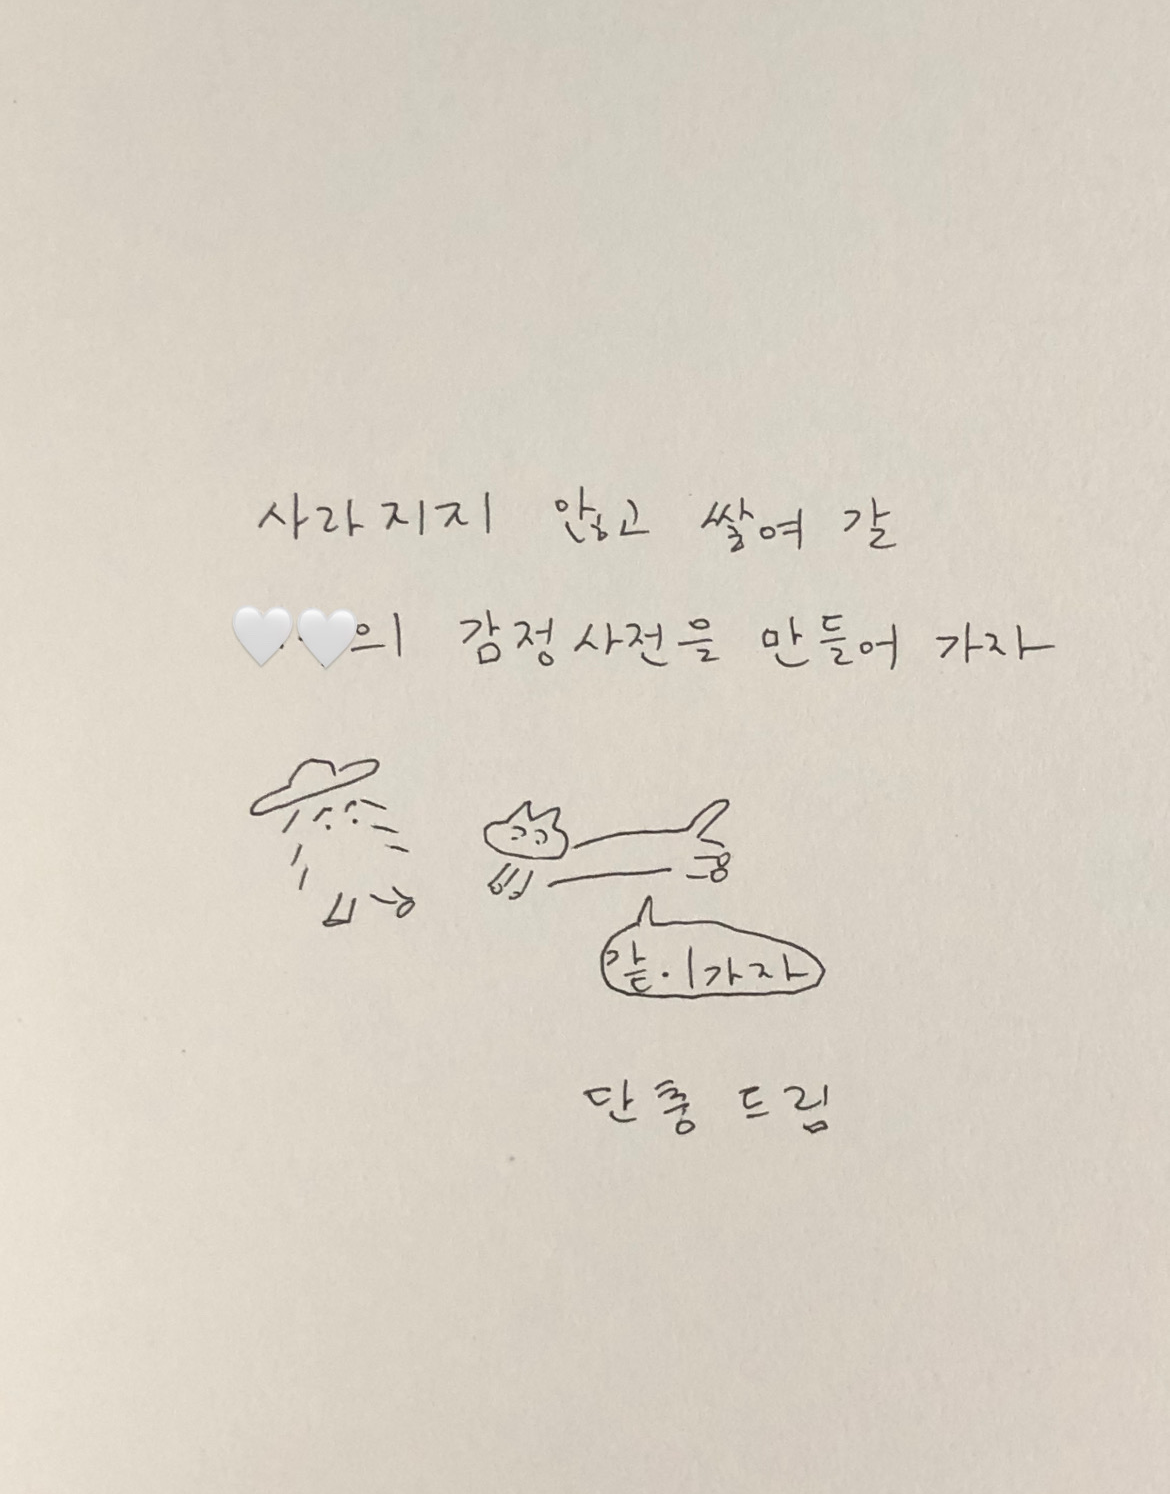 사라지지 않고 쌓여 갈
🤍🤍의 감정사전을 만들어 가자
같이가자
단춤 드림